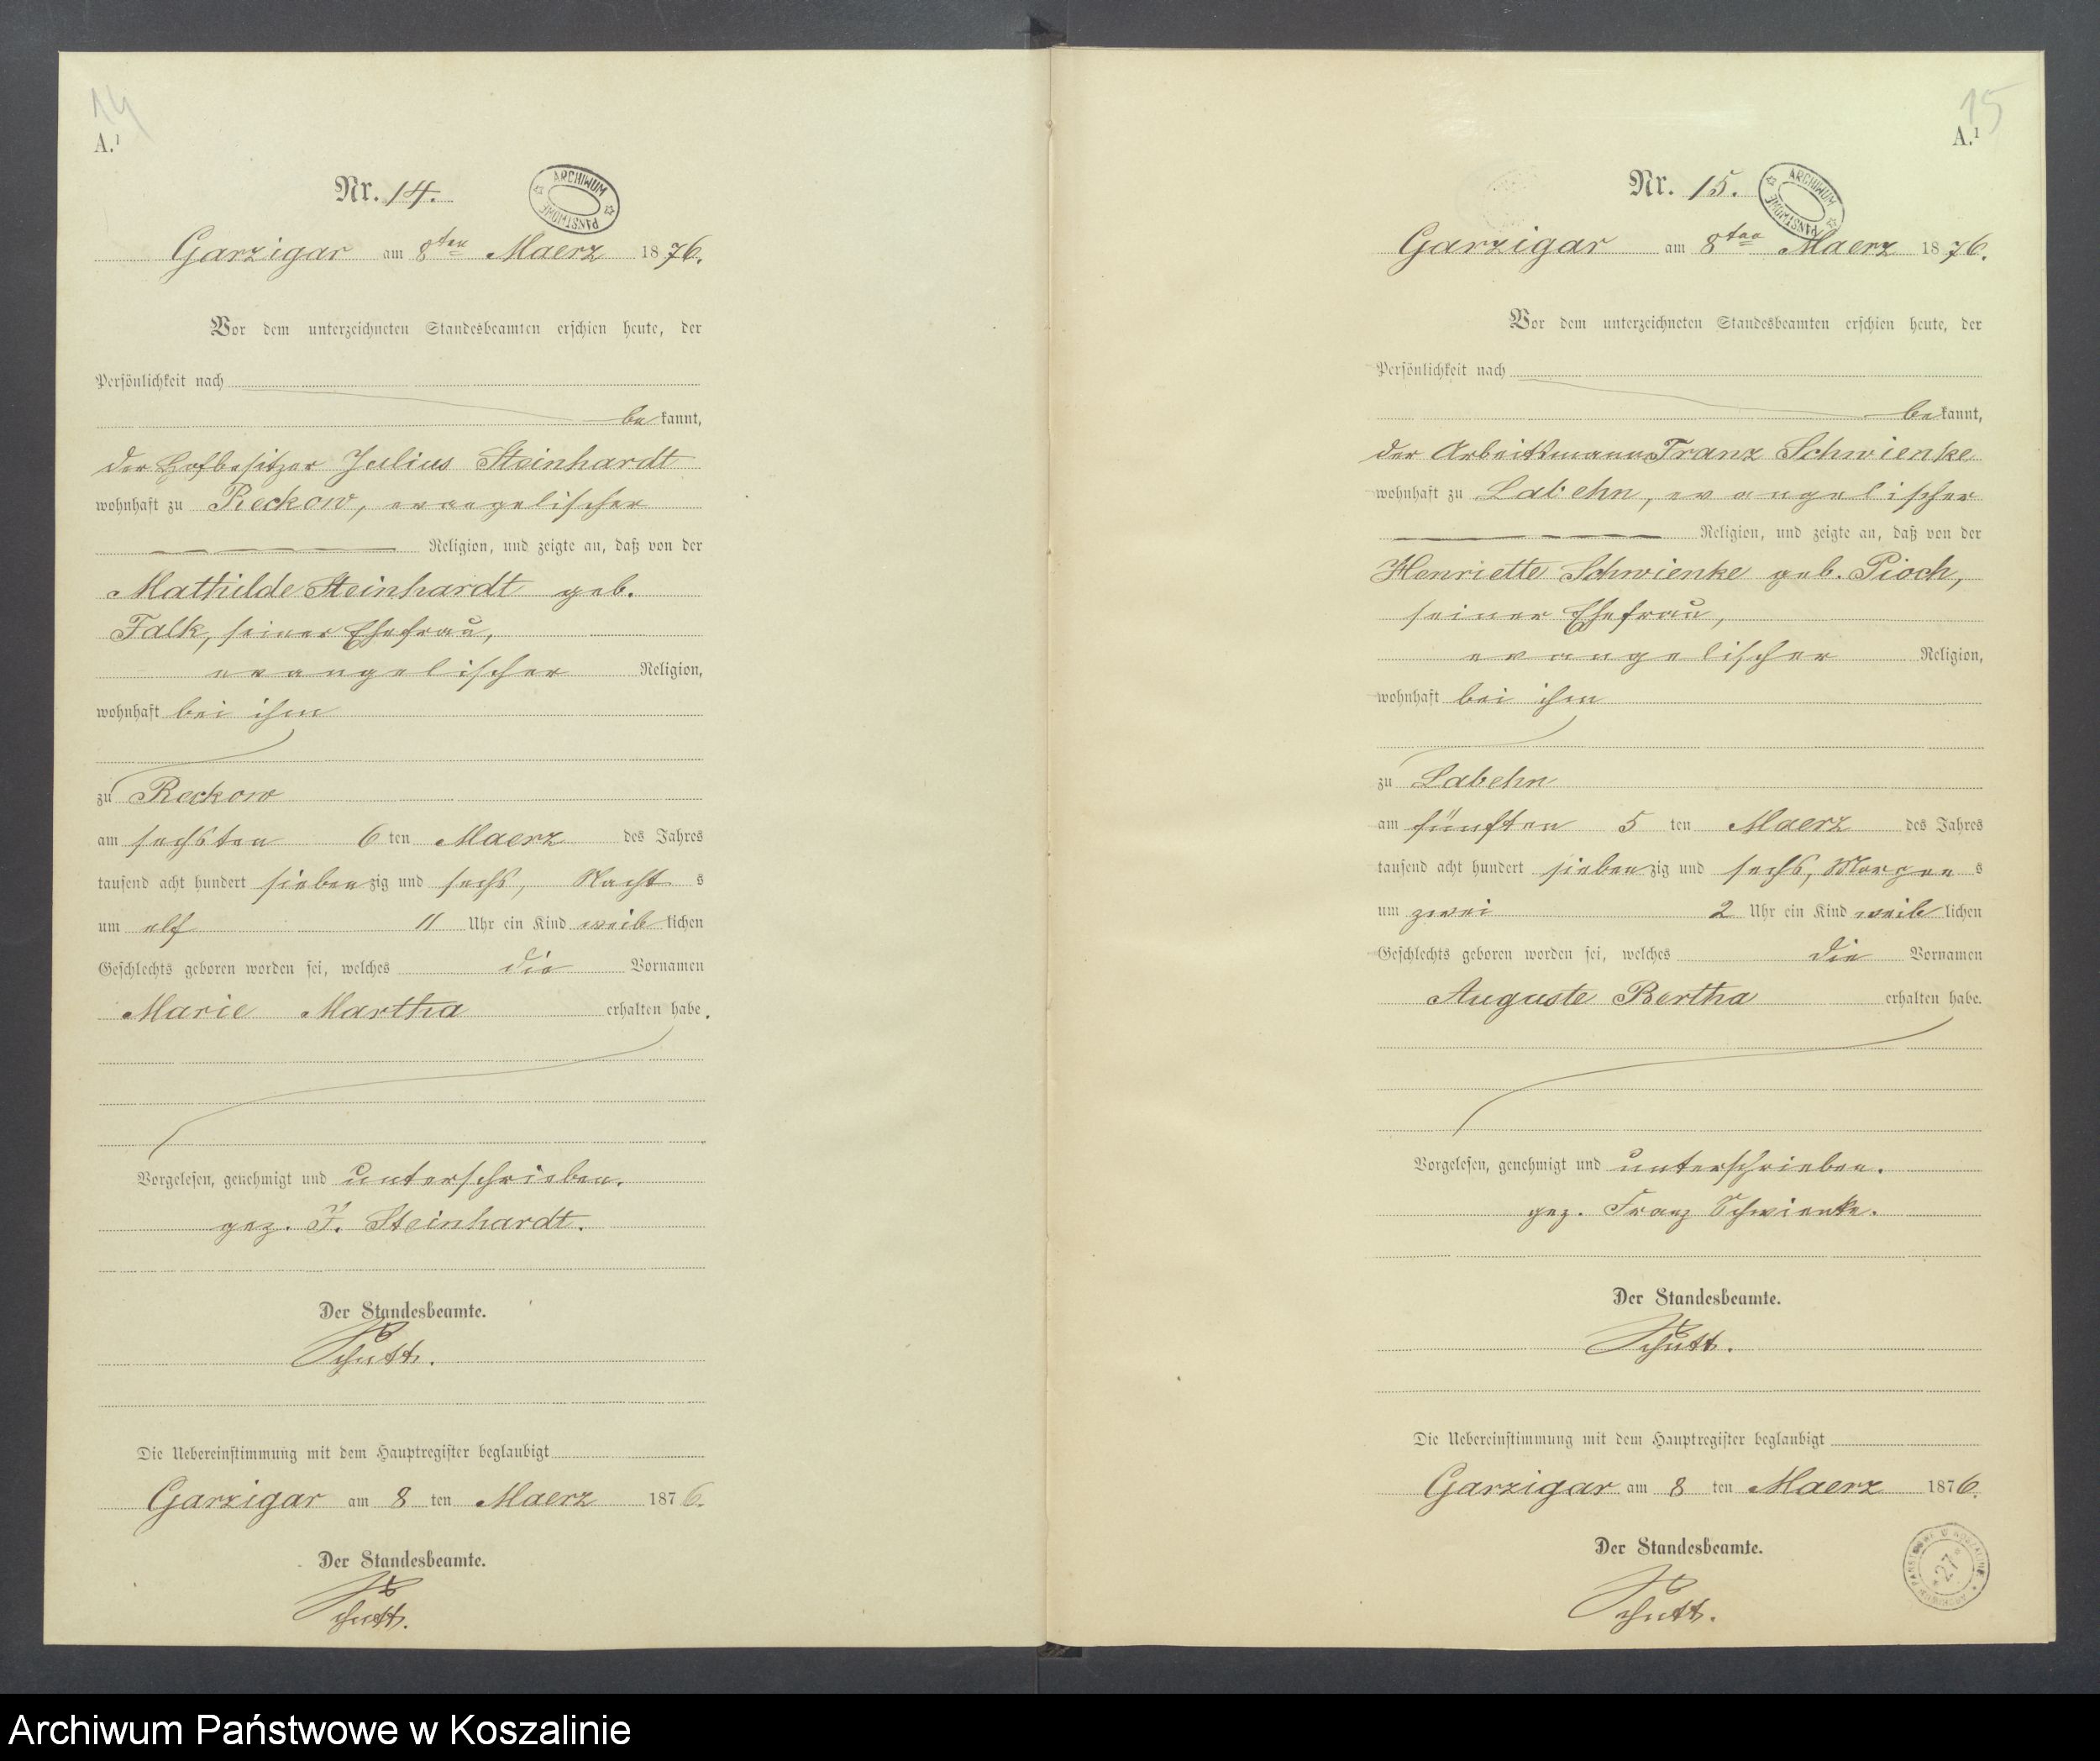 14
A.¹
Nr. 14.
ARCHIWUM PAŃSTWOWE
Garzigar am 8ten Maerz 1876.
Vor dem unterzeichneten Standesbeamten erschien heute, der
Persönlichkeit nach
bekannt,
der Hofbesitzer Julius Steinhardt
wohnhaft zu Reckow, evangelischer
Religion, und zeigte an, daß von der
Mathilde Steinhardt geb.
Falk, seiner Ehefrau,
evangelischer Religion,
wohnhaft bei ihm
zu Reckow
am sechsten 6ten Maerz des Jahres
tausend acht hundert siebenzig und sechs, Nachts
um elf 11 Uhr ein Kind weiblichen
Geschlechts geboren worden sei, welches die Vornamen
Marie Martha erhalten habe.
Vorgelesen, genehmigt und unterschrieben.
gez. J. Steinhardt.
Der Standesbeamte.
Schutt.
Die Uebereinstimmung mit dem Hauptregister beglaubigt
Garzigar am 8ten Maerz 1876.
Der Standesbeamte.
Schutt.
15
A.¹
Nr. 15.
ARCHIWUM PAŃSTWOWE
Garzigar am 8ten Maerz 1876.
Vor dem unterzeichneten Standesbeamten erschien heute, der
Persönlichkeit nach
bekannt,
der Arbeitsmann Franz Schwienke
wohnhaft zu Labehn, evangelischer
Religion, und zeigte an, daß von der
Henriette Schwienke geb. Pioch,
seiner Ehefrau,
evangelischer Religion,
wohnhaft bei ihm
zu Labehn
am fünften 5ten Maerz des Jahres
tausend acht hundert siebenzig und sechs, Morgens
um zwei 2 Uhr ein Kind weiblichen
Geschlechts geboren worden sei, welches die Vornamen
Auguste Bertha erhalten habe.
Vorgelesen, genehmigt und unterschrieben.
gez. Franz Schwienke.
Der Standesbeamte.
Schutt.
Die Uebereinstimmung mit dem Hauptregister beglaubigt
Garzigar am 8ten Maerz 1876.
Der Standesbeamte.
Schutt.
ARCHIWUM PAŃSTWOWE W KOSZALINIE
27
Archiwum Państwowe w Koszalinie